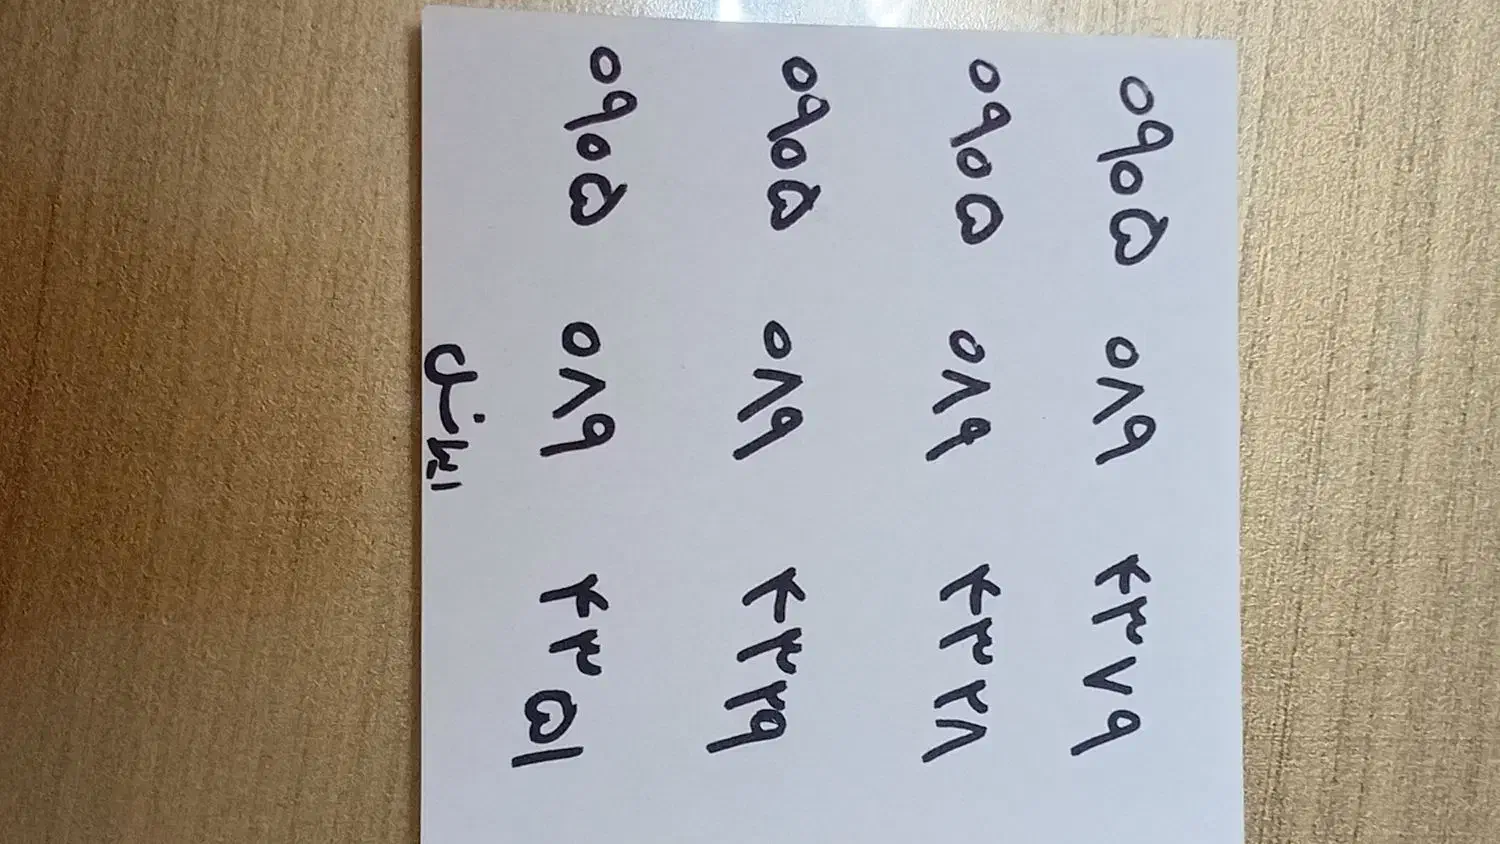 ۰۹۰۵ ۰۸۹ ۴۳۷۹
۰۹۰۵ ۰۸۹ ۴۳۲۸
۰۹۰۵ ۰۸۹ ۴۳۲۹
۰۹۰۵ ۰۸۹ ۴۳۵۱
ایرانسل